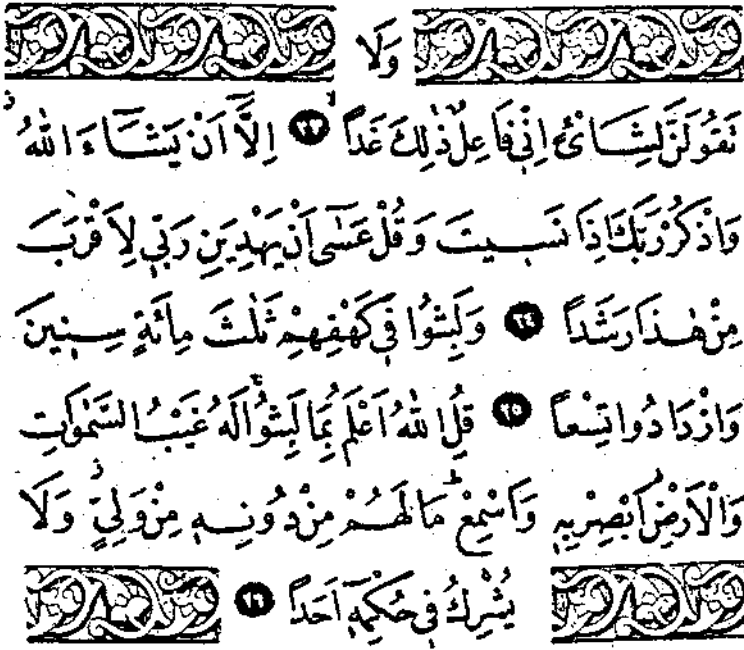 وَلَا
تَقُولَنَّ لِشَائْءٍ اِنِّي فَاعِلٌ ذٰلِكَ غَداً ﴿٢٣﴾ اِلَّٓا اَنْ يَشَٓاءَ اللّٰهُ
وَاذْكُرْ رَبَّكَ اِذَا نَسٖيتَ وَقُلْ عَسٰٓى اَنْ يَهْدِيَنِ رَبّٖي لِاَقْرَبَ
مِنْ هٰذَا رَشَداً ﴿٢٤﴾ وَلَبِثُوا فٖي كَهْفِهِمْ ثَلٰثَ مِائَةٍ سِنٖينَ
وَازْدَادُوا تِسْعاً ﴿٢٥﴾ قُلِ اللّٰهُ اَعْلَمُ بِمَا لَبِثُوا لَهُ غَيْبُ السَّمٰوَاتِ
وَالْاَرْضِ اَبْصِرْ بِهٖ وَاَسْمِعْ مَا لَهُمْ مِنْ دُونِهٖ مِنْ وَلِيٍّ وَلَا
يُشْرِكُ فٖي حُكْمِهٖٓ اَحَداً ﴿٢٦﴾